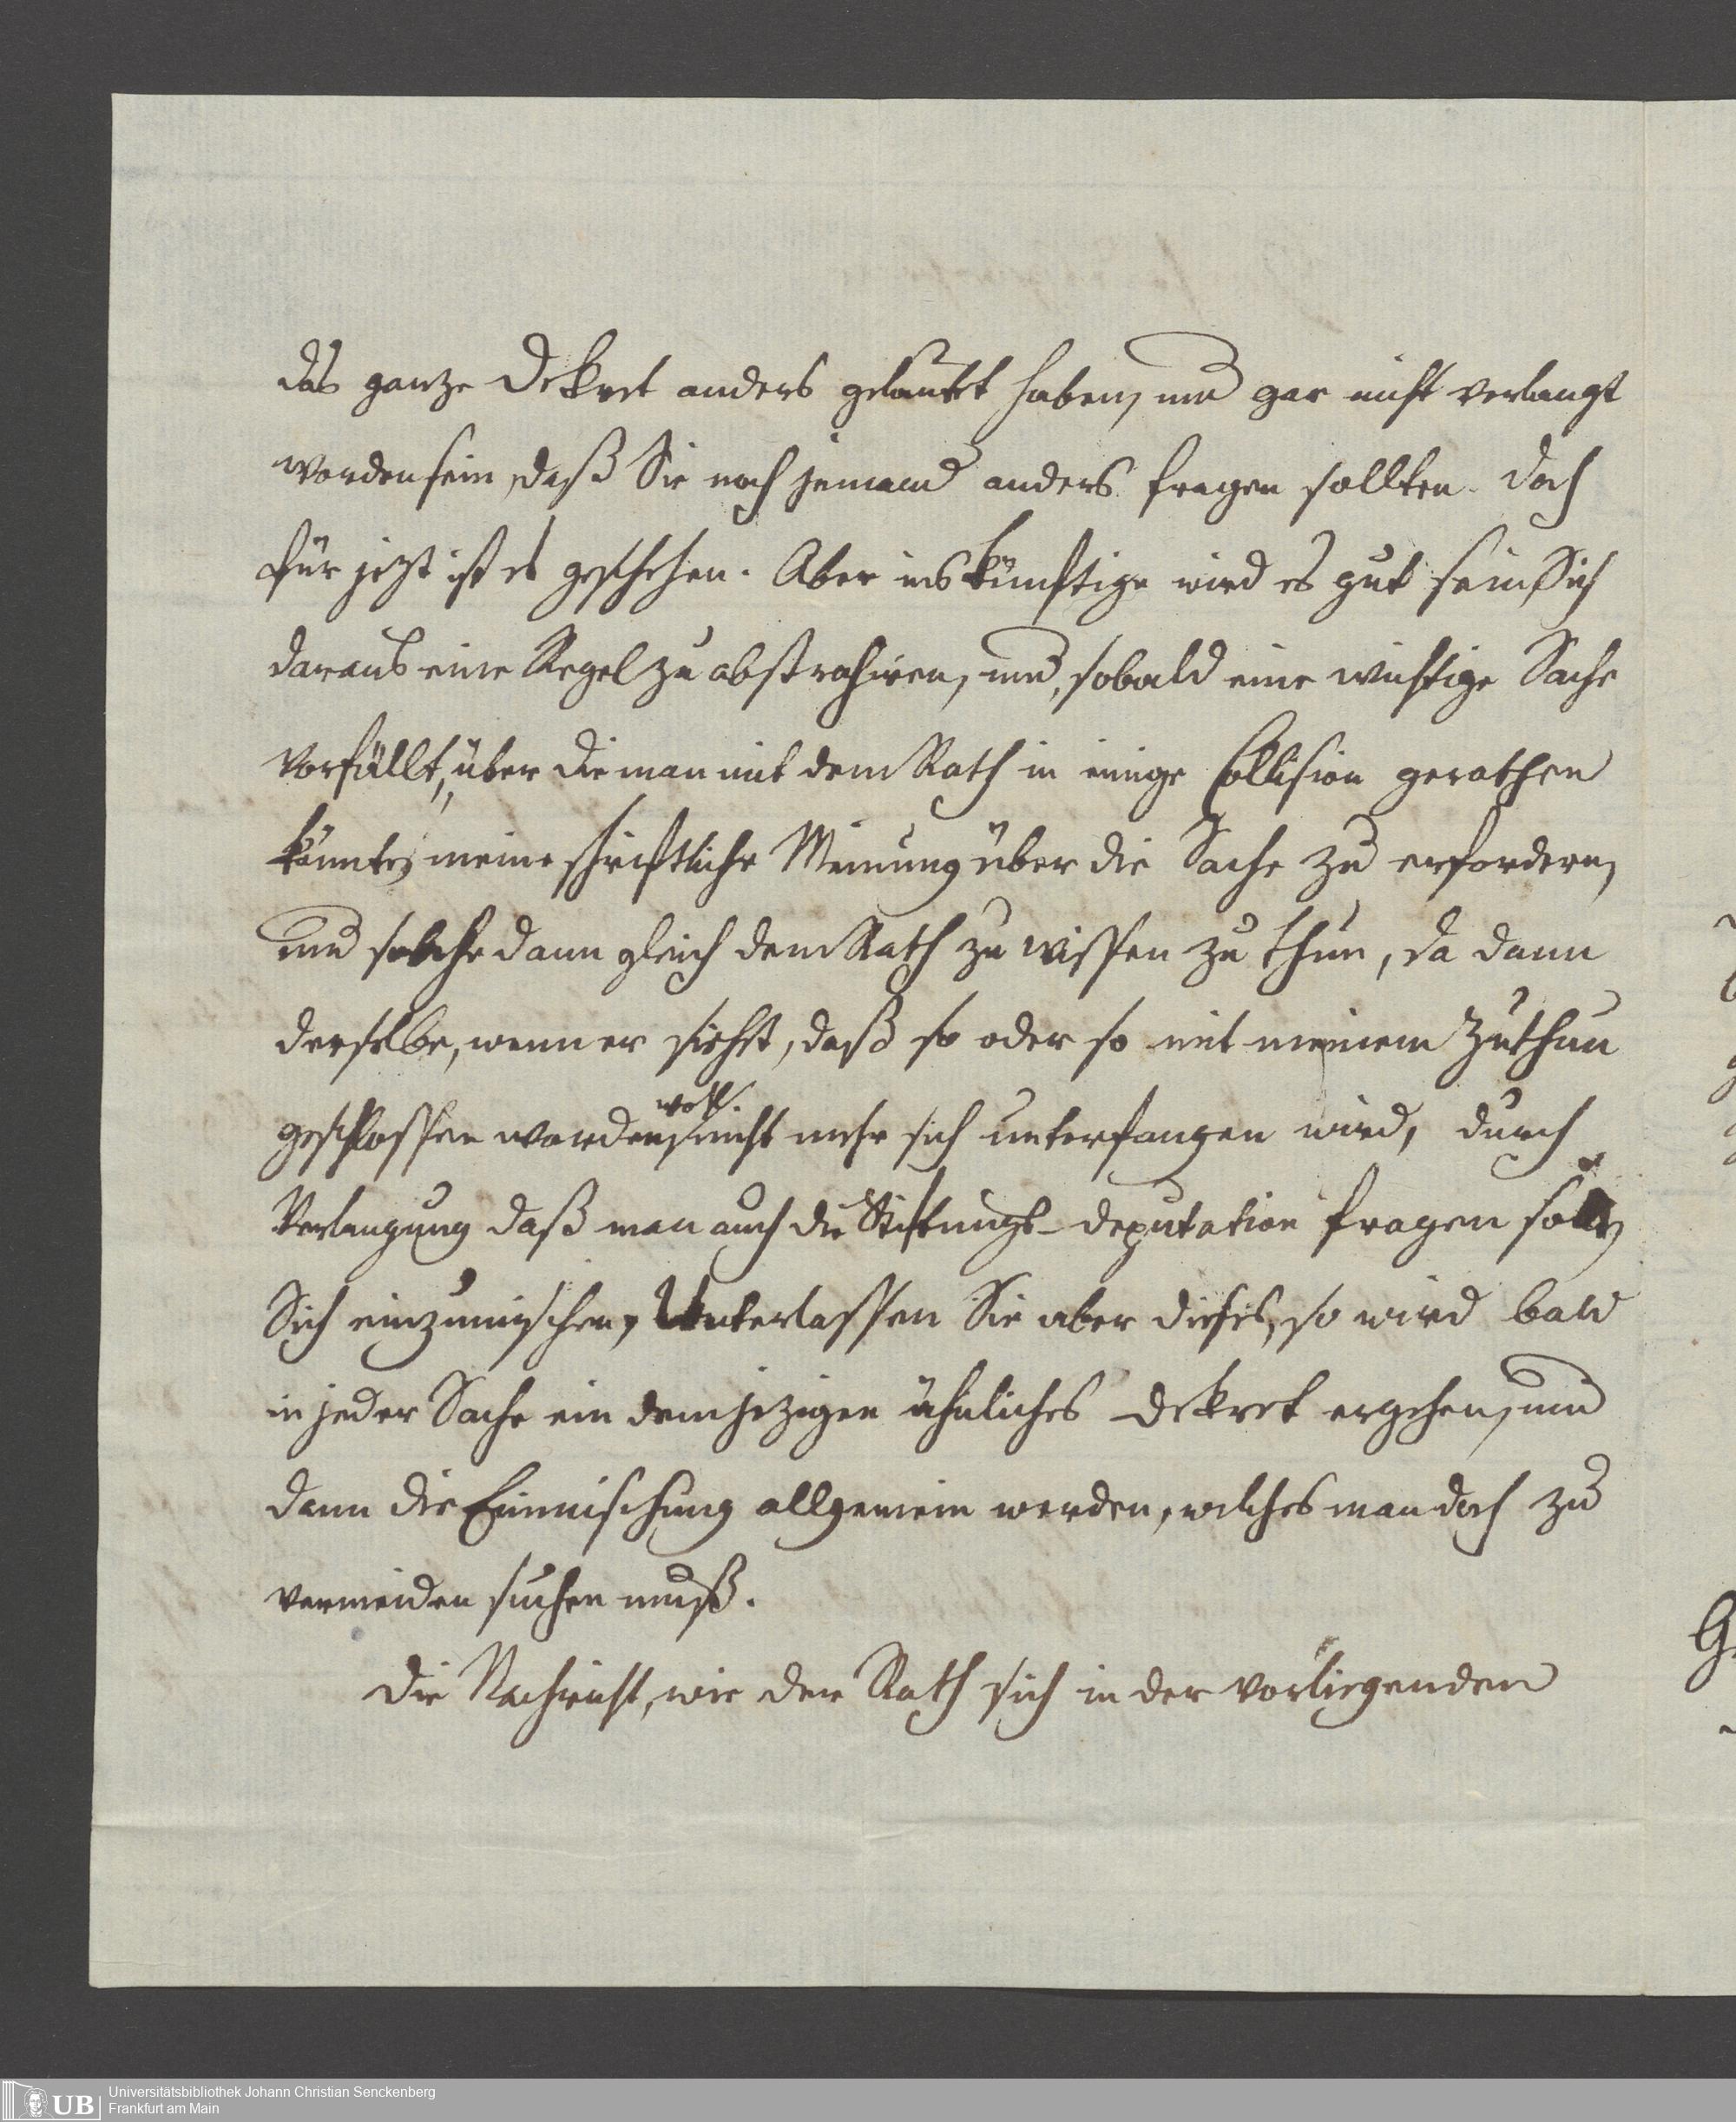 das ganze Dekret anders gelautet haben, und gar nicht verlangt
worden sein, daß Sie noch jemand anders fragen sollten. Doch
für jezt ist es geschehen. Aber ins künftige wird es gut sein, Sich
daraus eine Regel zu abstrahiren, und, sobald eine wichtige Sache
vorfällt, über die man mit dem Rath in einige Collision gerathen
könnte, meine schriftliche Meinung über die Sache zu erfordern,
und solche dann gleich dem Rath zu wissen zu thun, da dann
derselbe, wenn er siehst, daß so oder so mit meinem Zuthun
geschlossen worden, wohl nicht mehr sich unterfangen wird, durch
Verlangung daß man auch die Stiftungs-deputation fragen solle,
Sich einzumischen, Unterlassen Sie aber dieses, so wird bald
in jeder Sache ein dem jezigen ähnliches Dekret ergehen, und
dann die Einmischung allgemein werden, welches man doch zu
vermeiden suchen muß.
Die Nachricht, wie der Rath sich in der vorliegenden
UB
Universitätsbibliothek Johann Christian Senckenberg
Frankfurt am Main